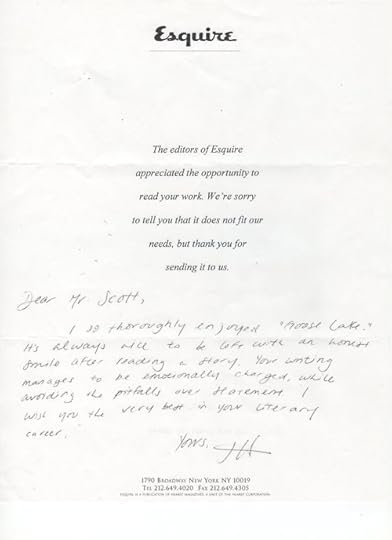 Esquire
The editors of Esquire
appreciated the opportunity to
read your work. We're sorry
to tell you that it does not fit our
needs, but thank you for
sending it to us.
Dear Mr Scott,
I so thoroughly enjoyed "Goose Lake."
It's always nice to be left with an honest
smile after reading a story. Your writing
manages to be emotionally charged, while
avoiding the pitfalls over statement I
wish you the very best in your literary
career.
Yours,
1790 BROADWAY NEW YORK NY 10019
TEL 212.649.4020 FAX 212.649.4305
ESQUIRE IS A PUBLICATION OF HEARST MAGAZINES, A UNIT OF THE HEARST CORPORATION.